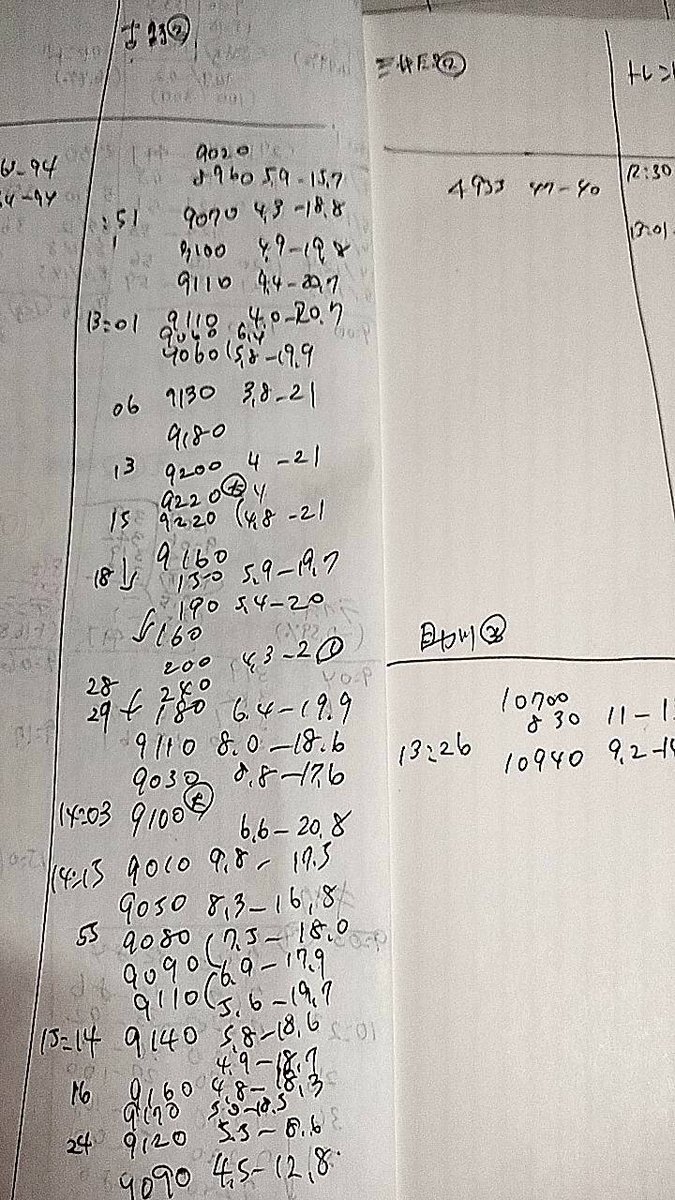 9020
8960 5,9-15,7
:51 9070 4,3-18,8
9100 4,9-19,8
9110 4,4-20,7
13:01 9110 4.0-20.7
9040 6,4
9060 (5,8-19,9
06 9130 3,8-21
9180
13 9200 4-21
9220
15 9220 (4,8-21
9160
18 150 5,9-19,7
190 5,4-20
160
200 4,3-2①
28 240
29 180 6.4-19.9
9110 8.0-18.6
9030 8,8-17,6
14:03 9100
6,6-20,8
14:13 9010 9,8-17.5
9050 8,3-16,8
55 9080 (7,5-18.0
9090 (6,9-17,9
9110 (5,6-19,7
15=14 9140 5,8-18,6
4,9-18,7
16 9160 4,8-18,3
9170 5,0-18,5
24 9120
9090 4,5-12,8
4933 47-40
トレン
12:30
13:01
10700
830 11-1
13:26 10940 9,2-1